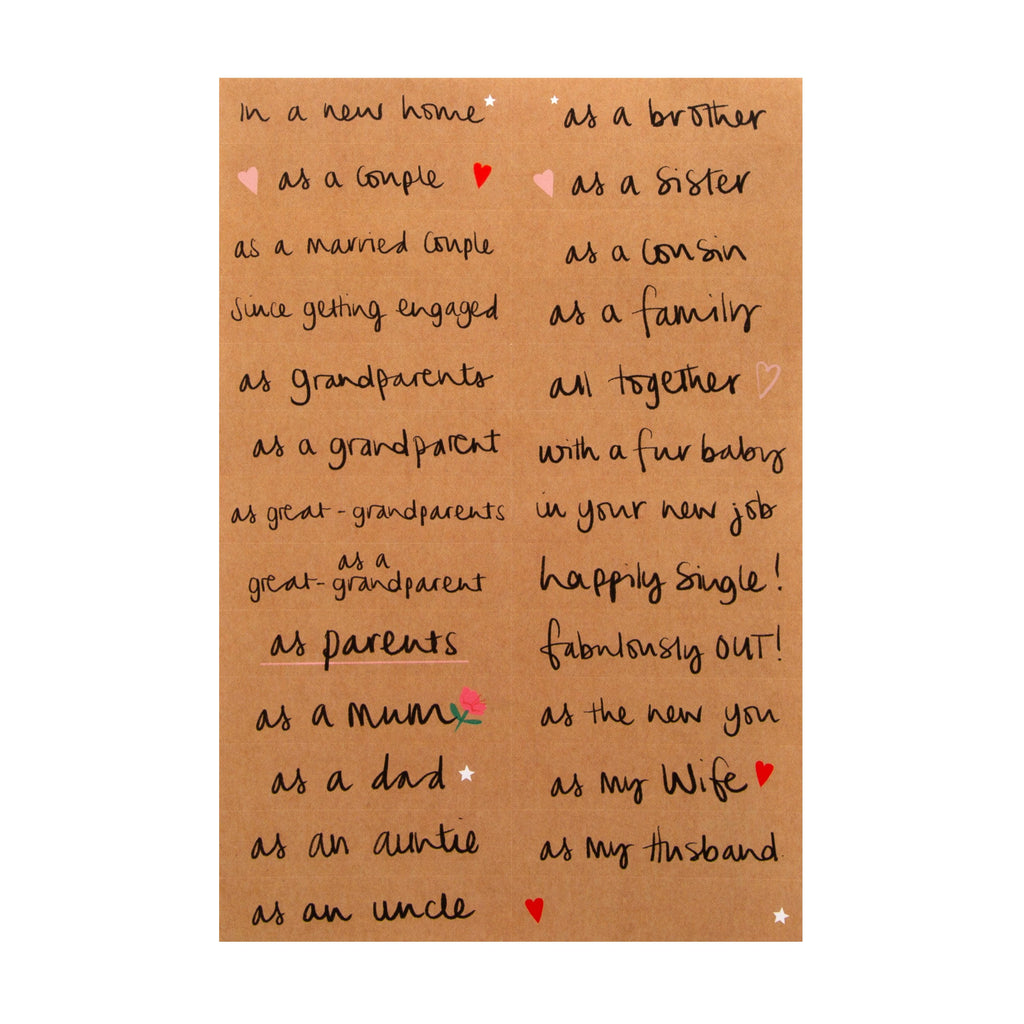 in a new home
as a couple
as a married couple
since getting engaged
as grandparents
as a grandparent
as great-grandparents
as a
great-grandparent
as parents
as a mum
as a dad
as an auntie
as an uncle
as a brother
as a sister
as a cousin
as a family
all together
with a fur baby
in your new job
happily single!
fabulously OUT!
as the new you
as my Wife
as my Husband